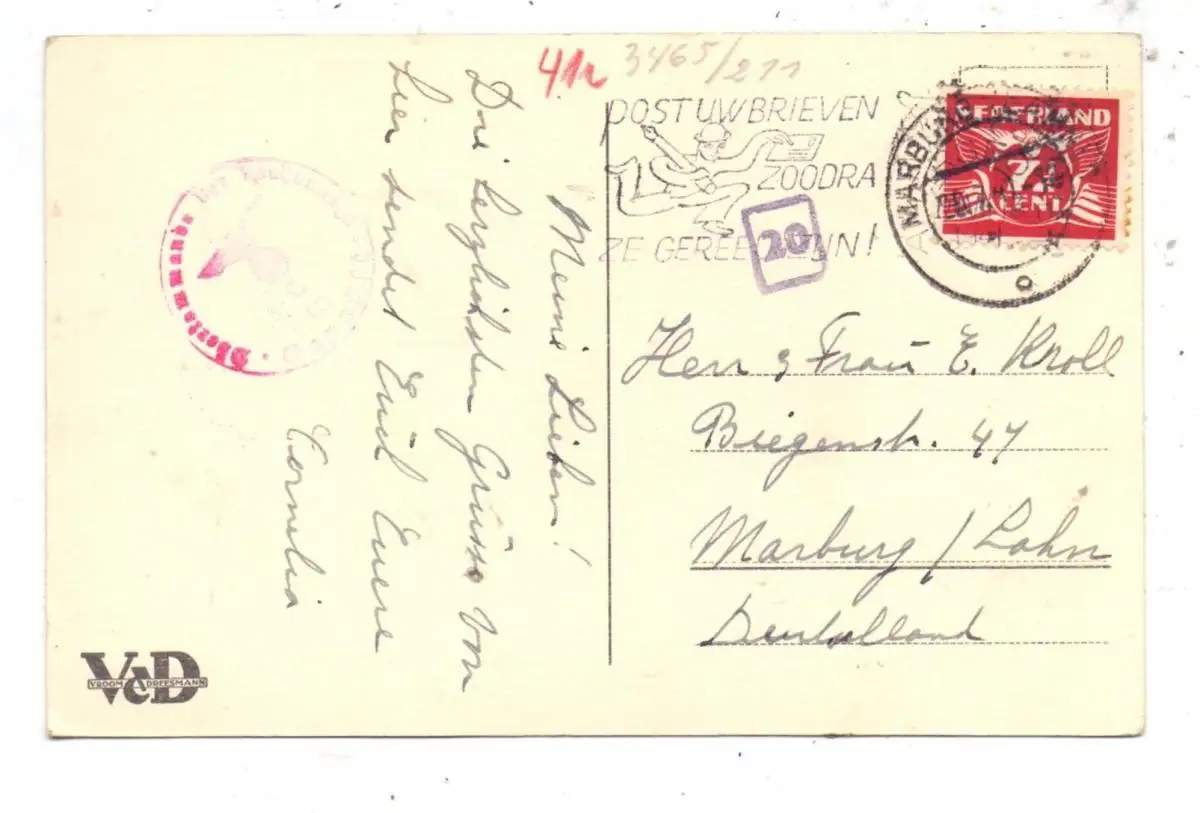 41r 3465/211
POST UW BRIEVEN
ZOODRA
ZE GEREED ZIJN!
20
MARBURG
NEDERLAND
7½
CENT
Meine Lieben!
Die herzlichsten Grüsse von
hier sendet Euch Euere
Cornelia
Herr & Frau E. Kroll
Biegenstr. 47
Marburg / Lahn
Deutschland
V&D
VROOM & DREESMANN